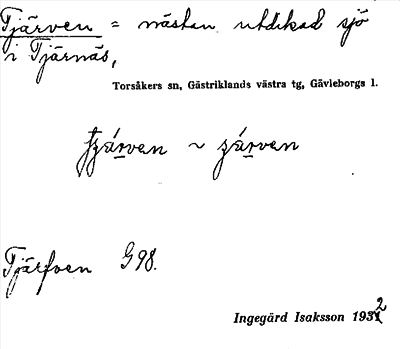 Tjärven = nästan utdikad sjö
i Tjärnäs,
Torsåkers sn, Gästriklands västra tg, Gävleborgs l.
tjárven ~ járven
Tjärfven G98.
Ingegärd Isaksson 1932